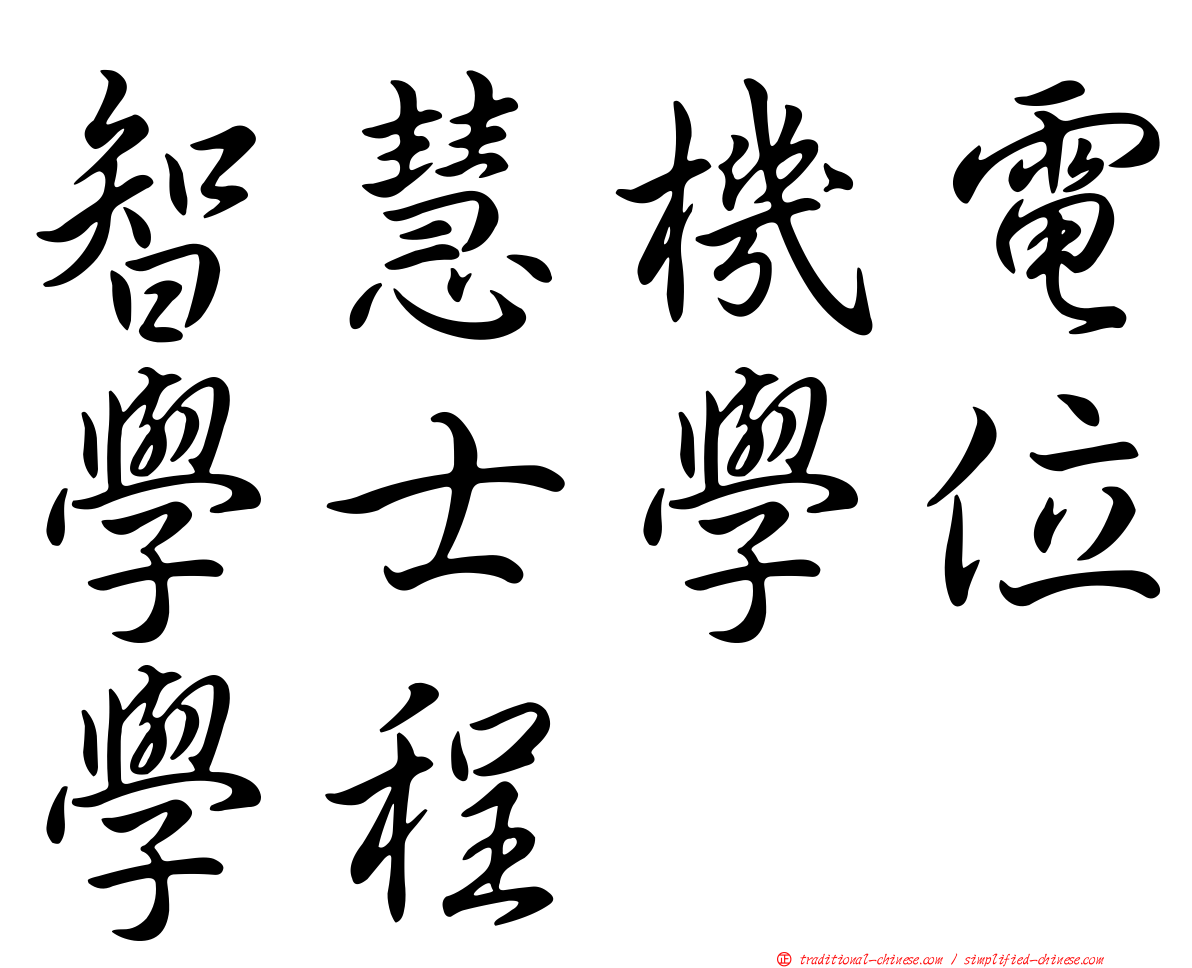 智慧機電
學士學位
學程
正 traditional-chinese.com / simplified-chinese.com